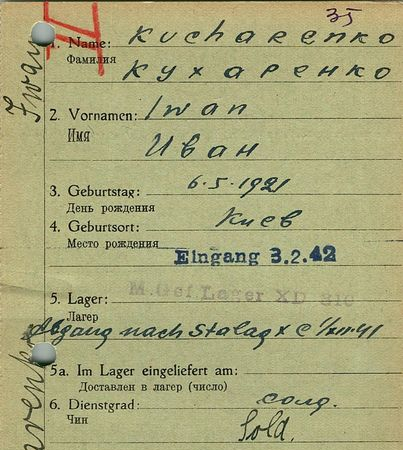 35
1. Name: Kucharenko
Фамилия Кухаренко
2. Vornamen: Iwan
Имя Иван
3. Geburtstag: 6.5.1921
День рождения
4. Geburtsort: Киев
Место рождения
Eingang 3.2.42
M Gef Lager XD 310
5. Lager:
Лагер
Abgang nach Stalag X C 1/XII.41
5a. Im Lager eingeliefert am:
Доставлен в лагер (число)
6. Dienstgrad: солд.
Чин Sold.
Iwan